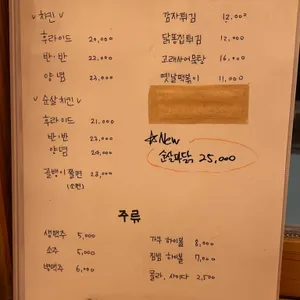 치킨
후라이드 20,000
반·반 22,000
양념 23,000
순살 치킨
후라이드 21,000
반·반 23,000
양념 24,000
골뱅이쫄면 23,000
(소면)
감자튀김 12,000
닭똥집튀김 12,000
고래사어묵탕 16,000
옛날떡볶이 11,000
☆New
순살파닭 25,000
주류
생맥주 5,000
소주 5,000
병맥주 6,000
하이볼 8,000
하이볼 7,000
콜라, 사이다 2,500